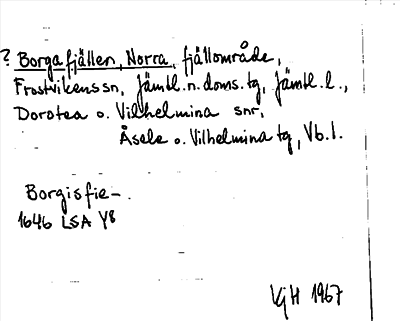 ? Borgafjällen, Norra, fjällområde,
Frostvikens sn, Jämtl. n. doms. tg, Jämtl. l.,
Dorotea o. Vilhelmina snr,
Åsele o. Vilhelmina tg, Vb. l.
Borgisfie-.
1646 LSA Y8
KjH 1967